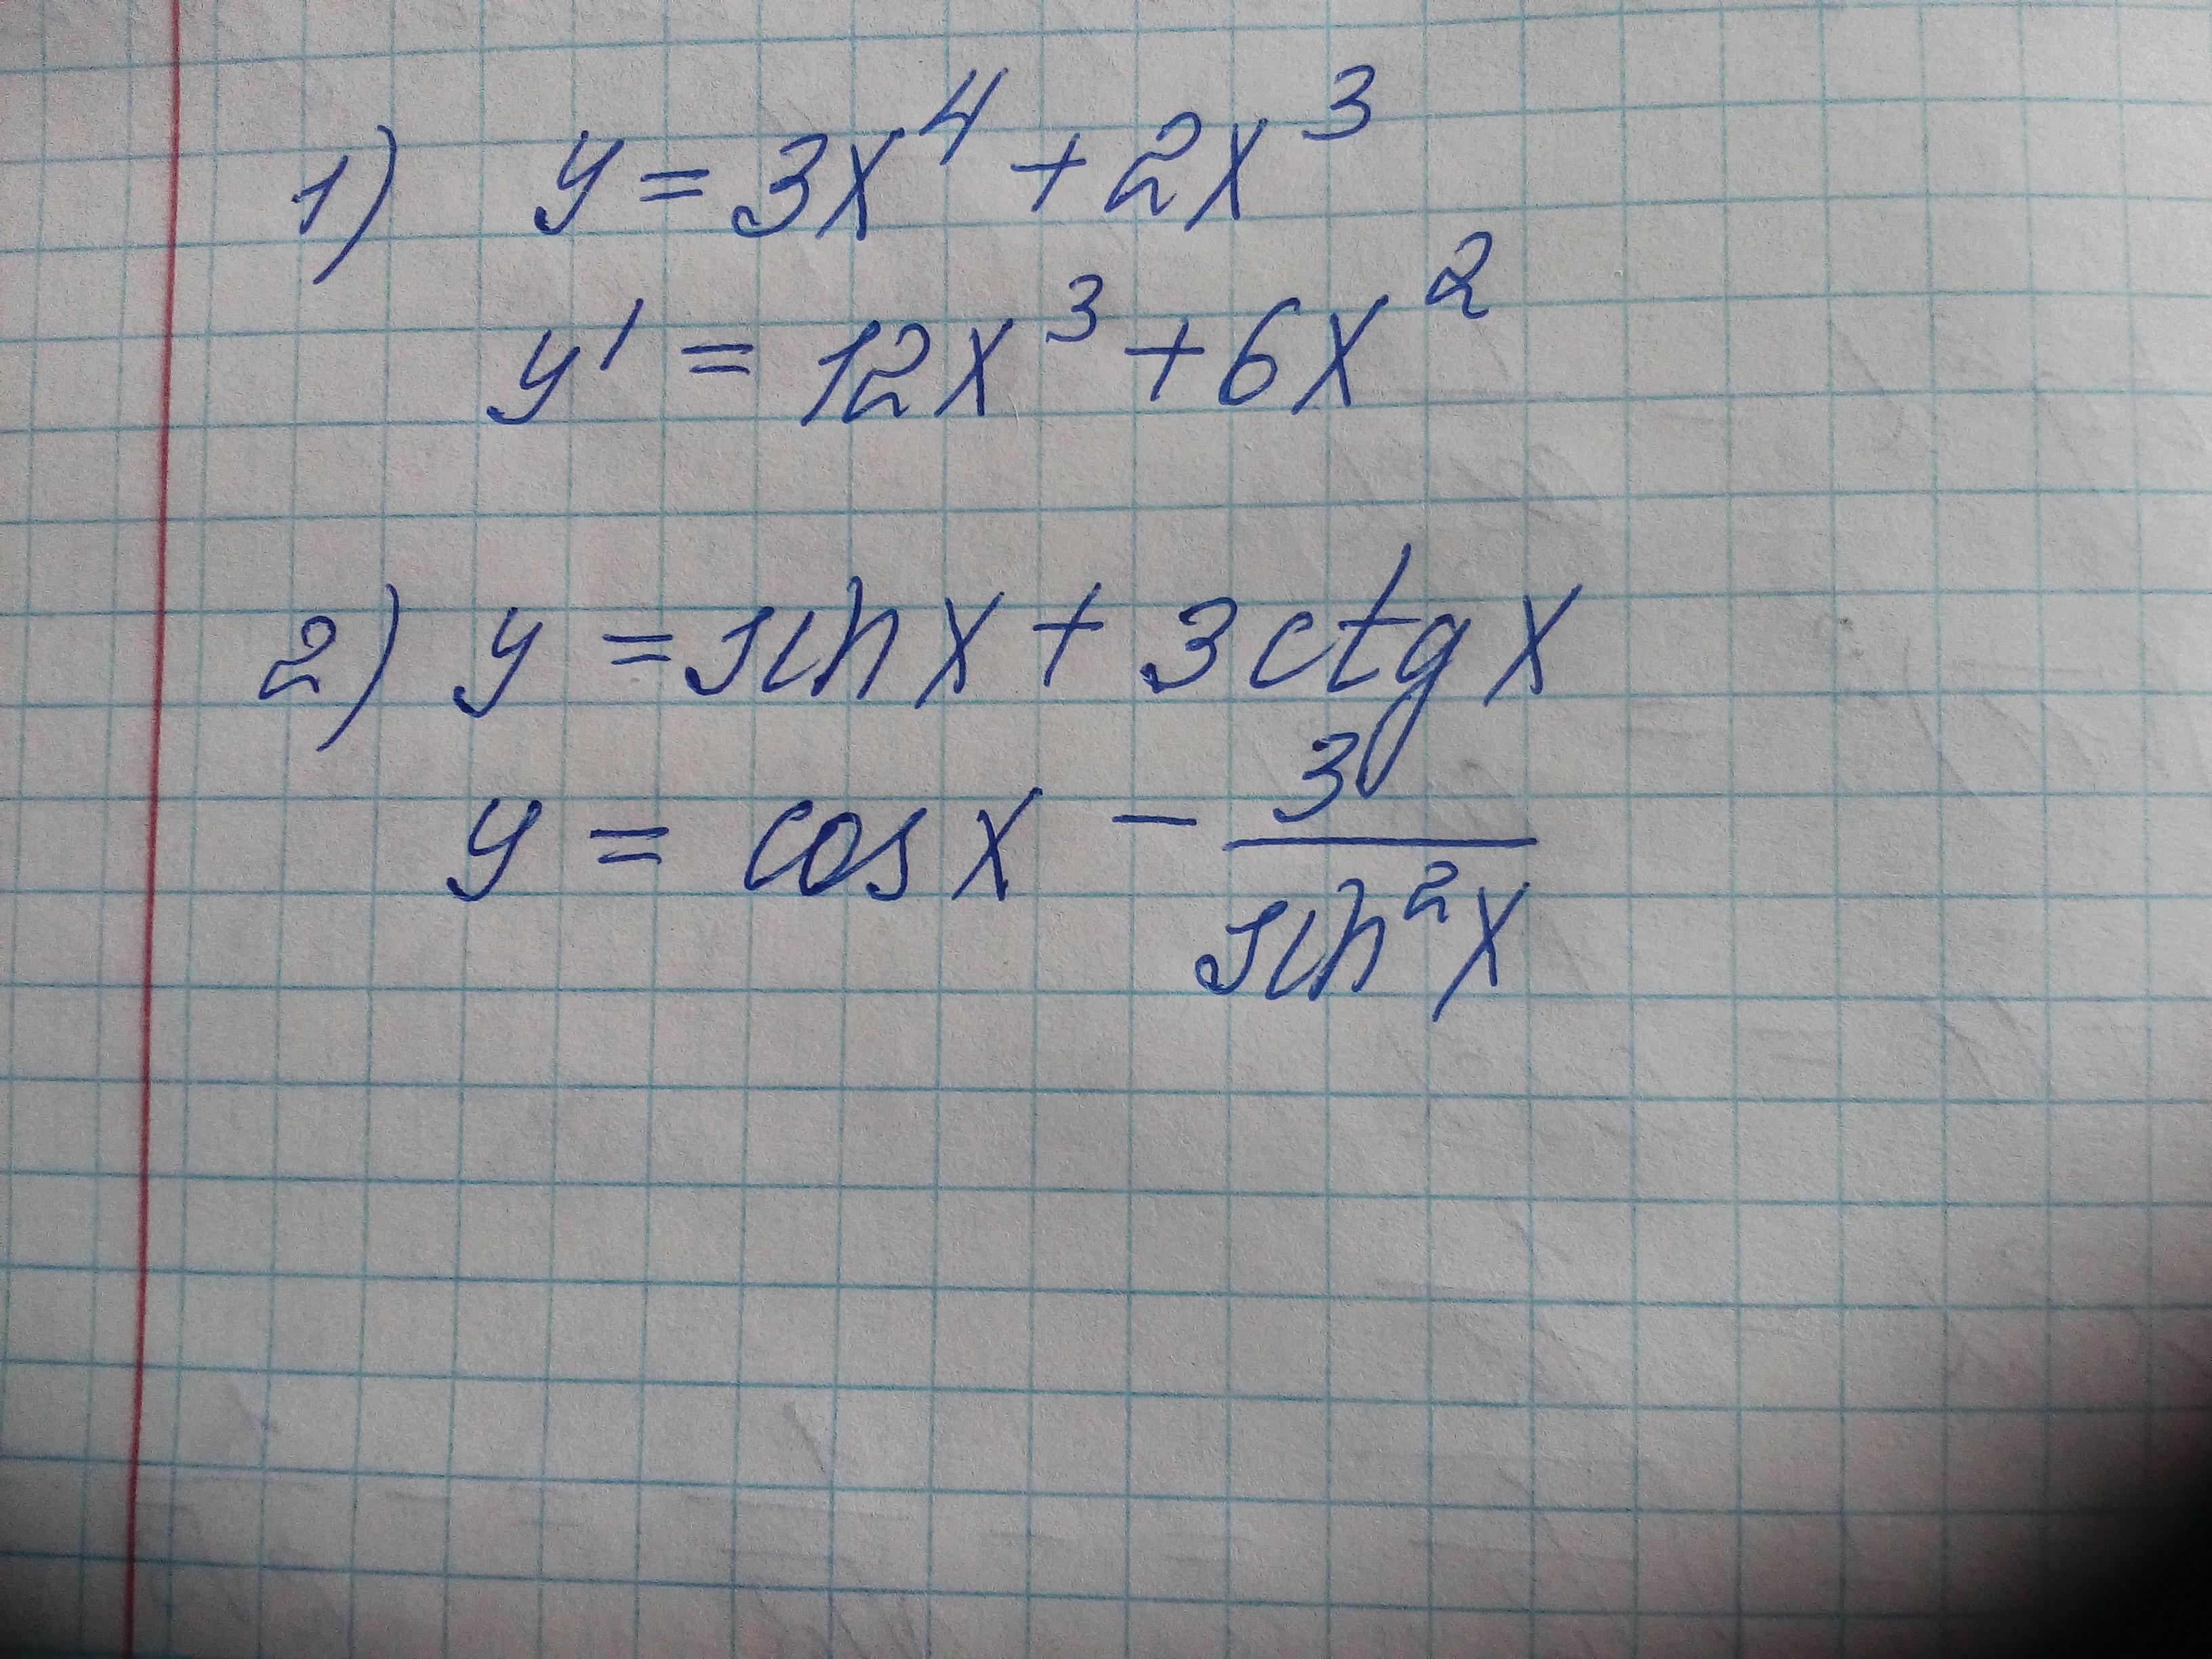 1) y = 3x⁴ + 2x³
y' = 12x³ + 6x²
2) y = sin x + 3 ctg x
y = cos x - 3/sin²x